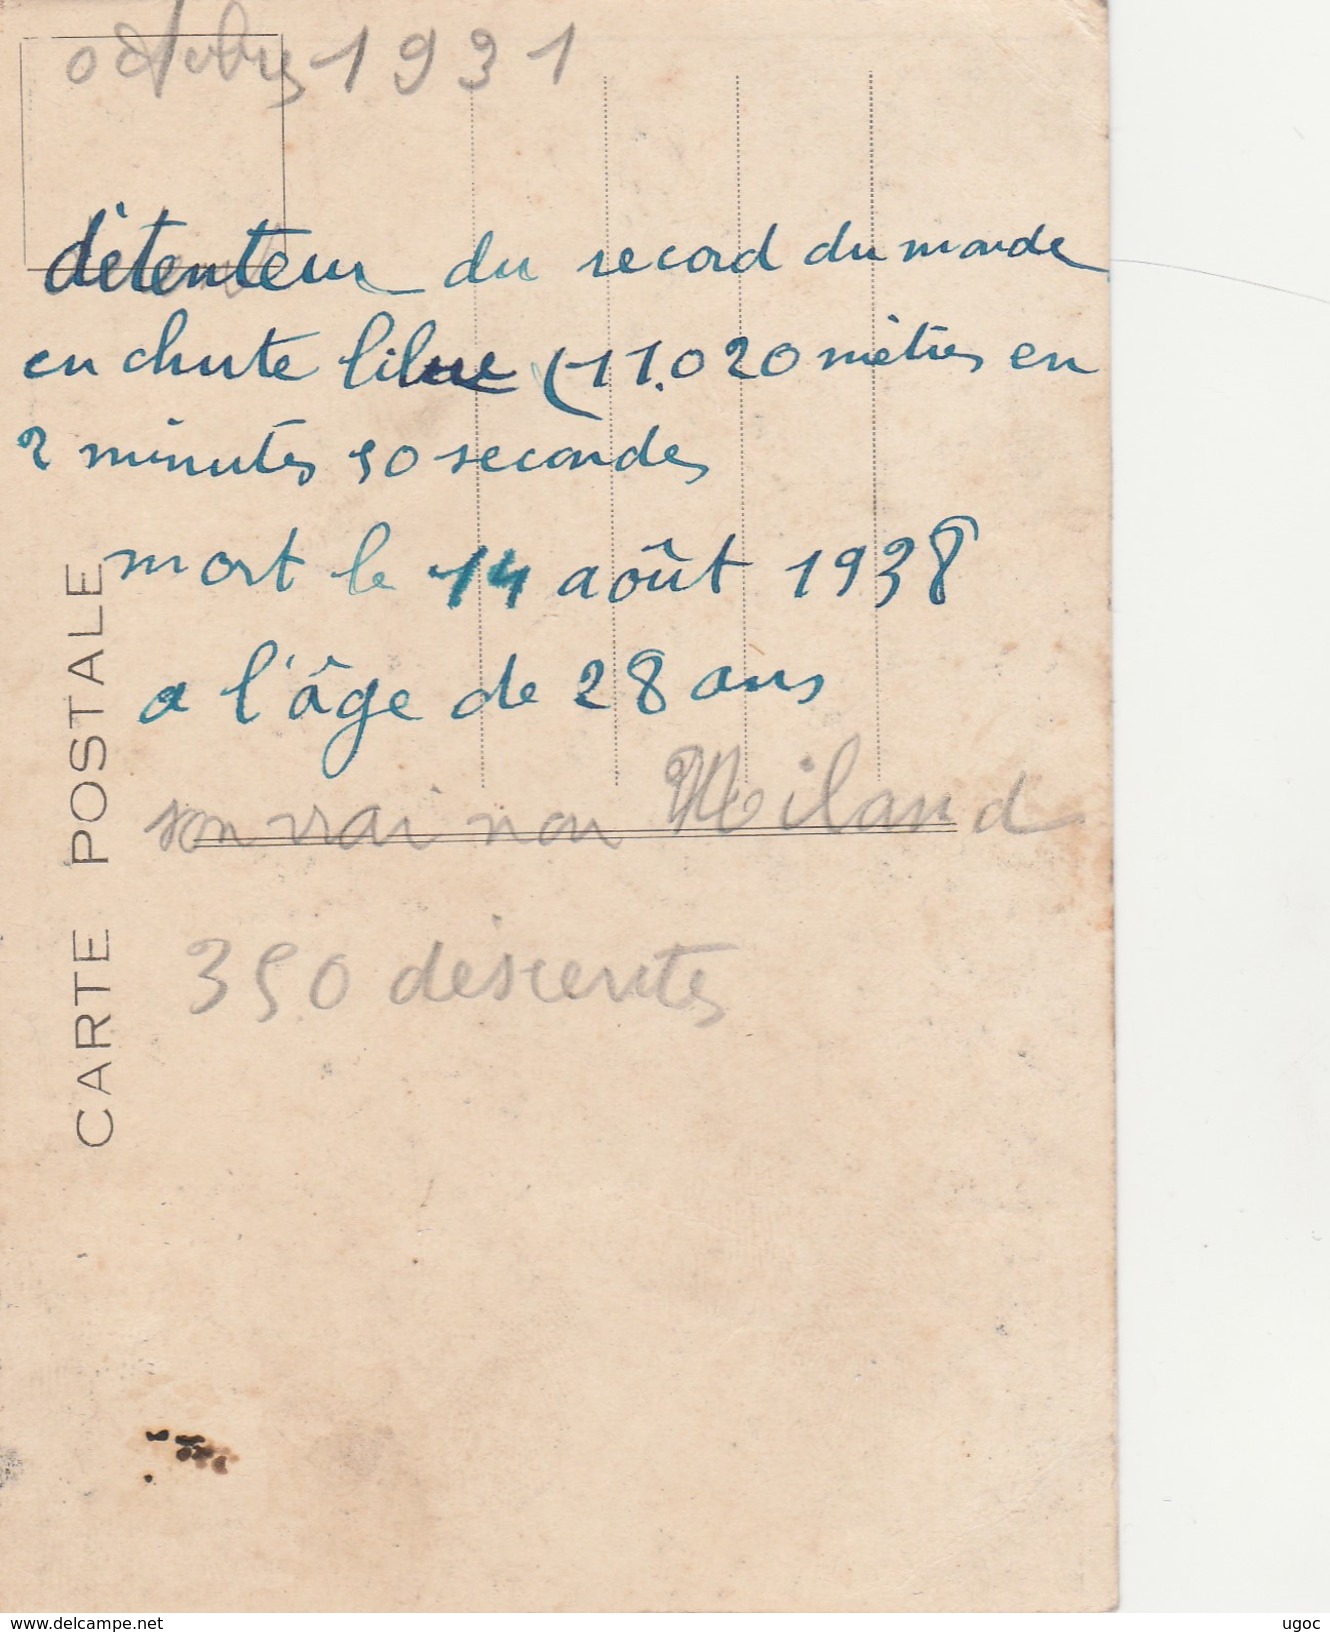 octobre 1931
détenteur du record du monde
en chute libre (11.020 mètres en
2 minutes 50 secondes
mort le 14 août 1938
a l'âge de 28 ans
son vrai nom Niland
350 descentes
CARTE POSTALE
https://www.delcampe.net
ugoc